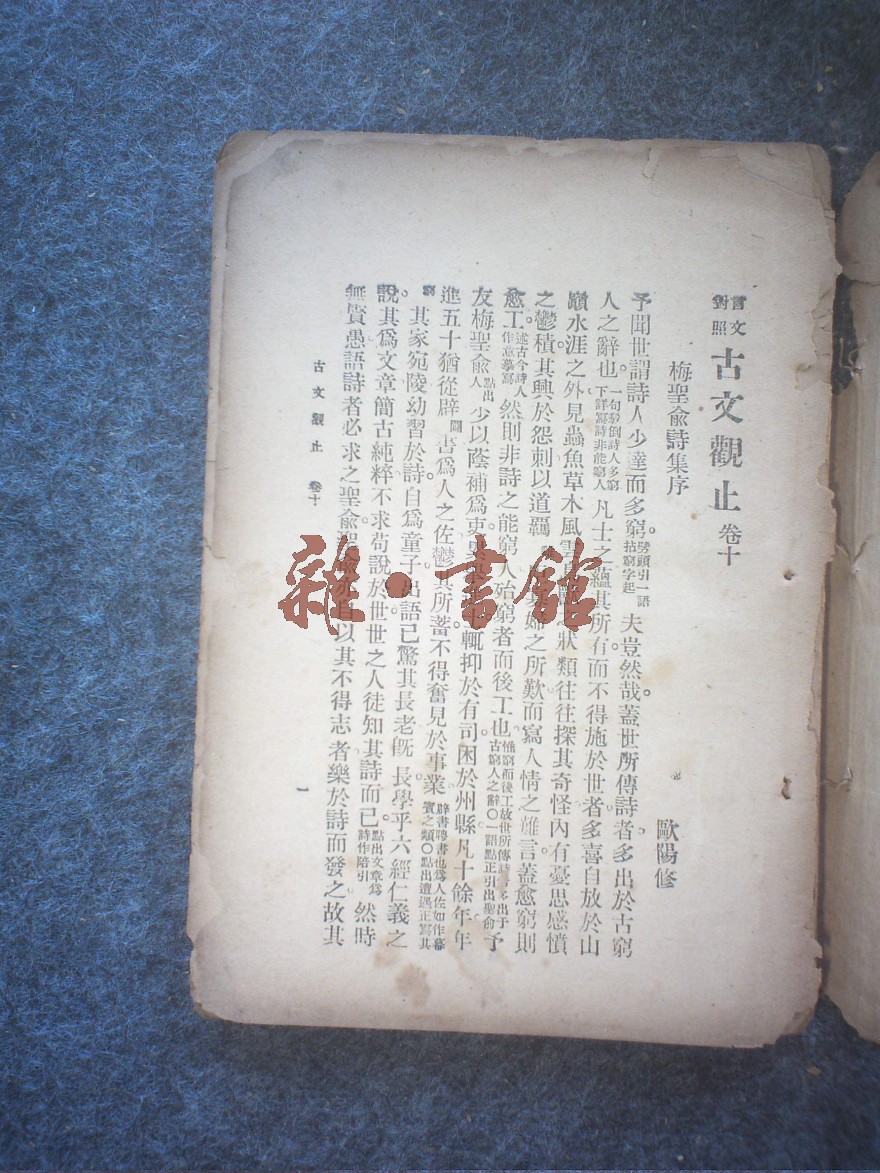 言文對照 古文觀止 卷十
梅聖俞詩集序
歐陽修
予聞世謂詩人少達而多窮。劈頭引一語拈窮字起夫豈然哉。蓋世所傳詩者多出於古窮
人之辭也。一句駁倒詩人多窮下詳寫詩非能窮人凡士之蘊其所有而不得施於世者多喜自放於山
巔水涯之外見蟲魚草木風雲之狀類往往探其奇怪內有憂思感憤
之鬱積其興於怨刺以道羈婦之所歎而寫人情之難言蓋愈窮則
愈工。述古今詩人作意摹寫然則非詩之能窮人殆窮者而後工也。惟窮而後工故世所傳詩多出于古窮人之辭〇一語點正引出聖俞予
友梅聖俞點出人少以蔭補為吏輒抑於有司困於州縣凡十餘年年
進五十猶從辟書為人之佐鬱其所蓄不得奮見於事業辟書聘書也為人佐如作幕賓之類〇點出遭遇正寫其
窮。其家宛陵幼習於詩自為童子出語已驚其長老旣長學乎六經仁義之
說其為文章簡古純粹不求苟說於世世之人徒知其詩而已。點出文章為詩作陪引然時
無賢愚語詩者必求之聖俞聖俞亦自以其不得志者樂於詩而發之故其
古文觀止 卷十
一
雜·書館